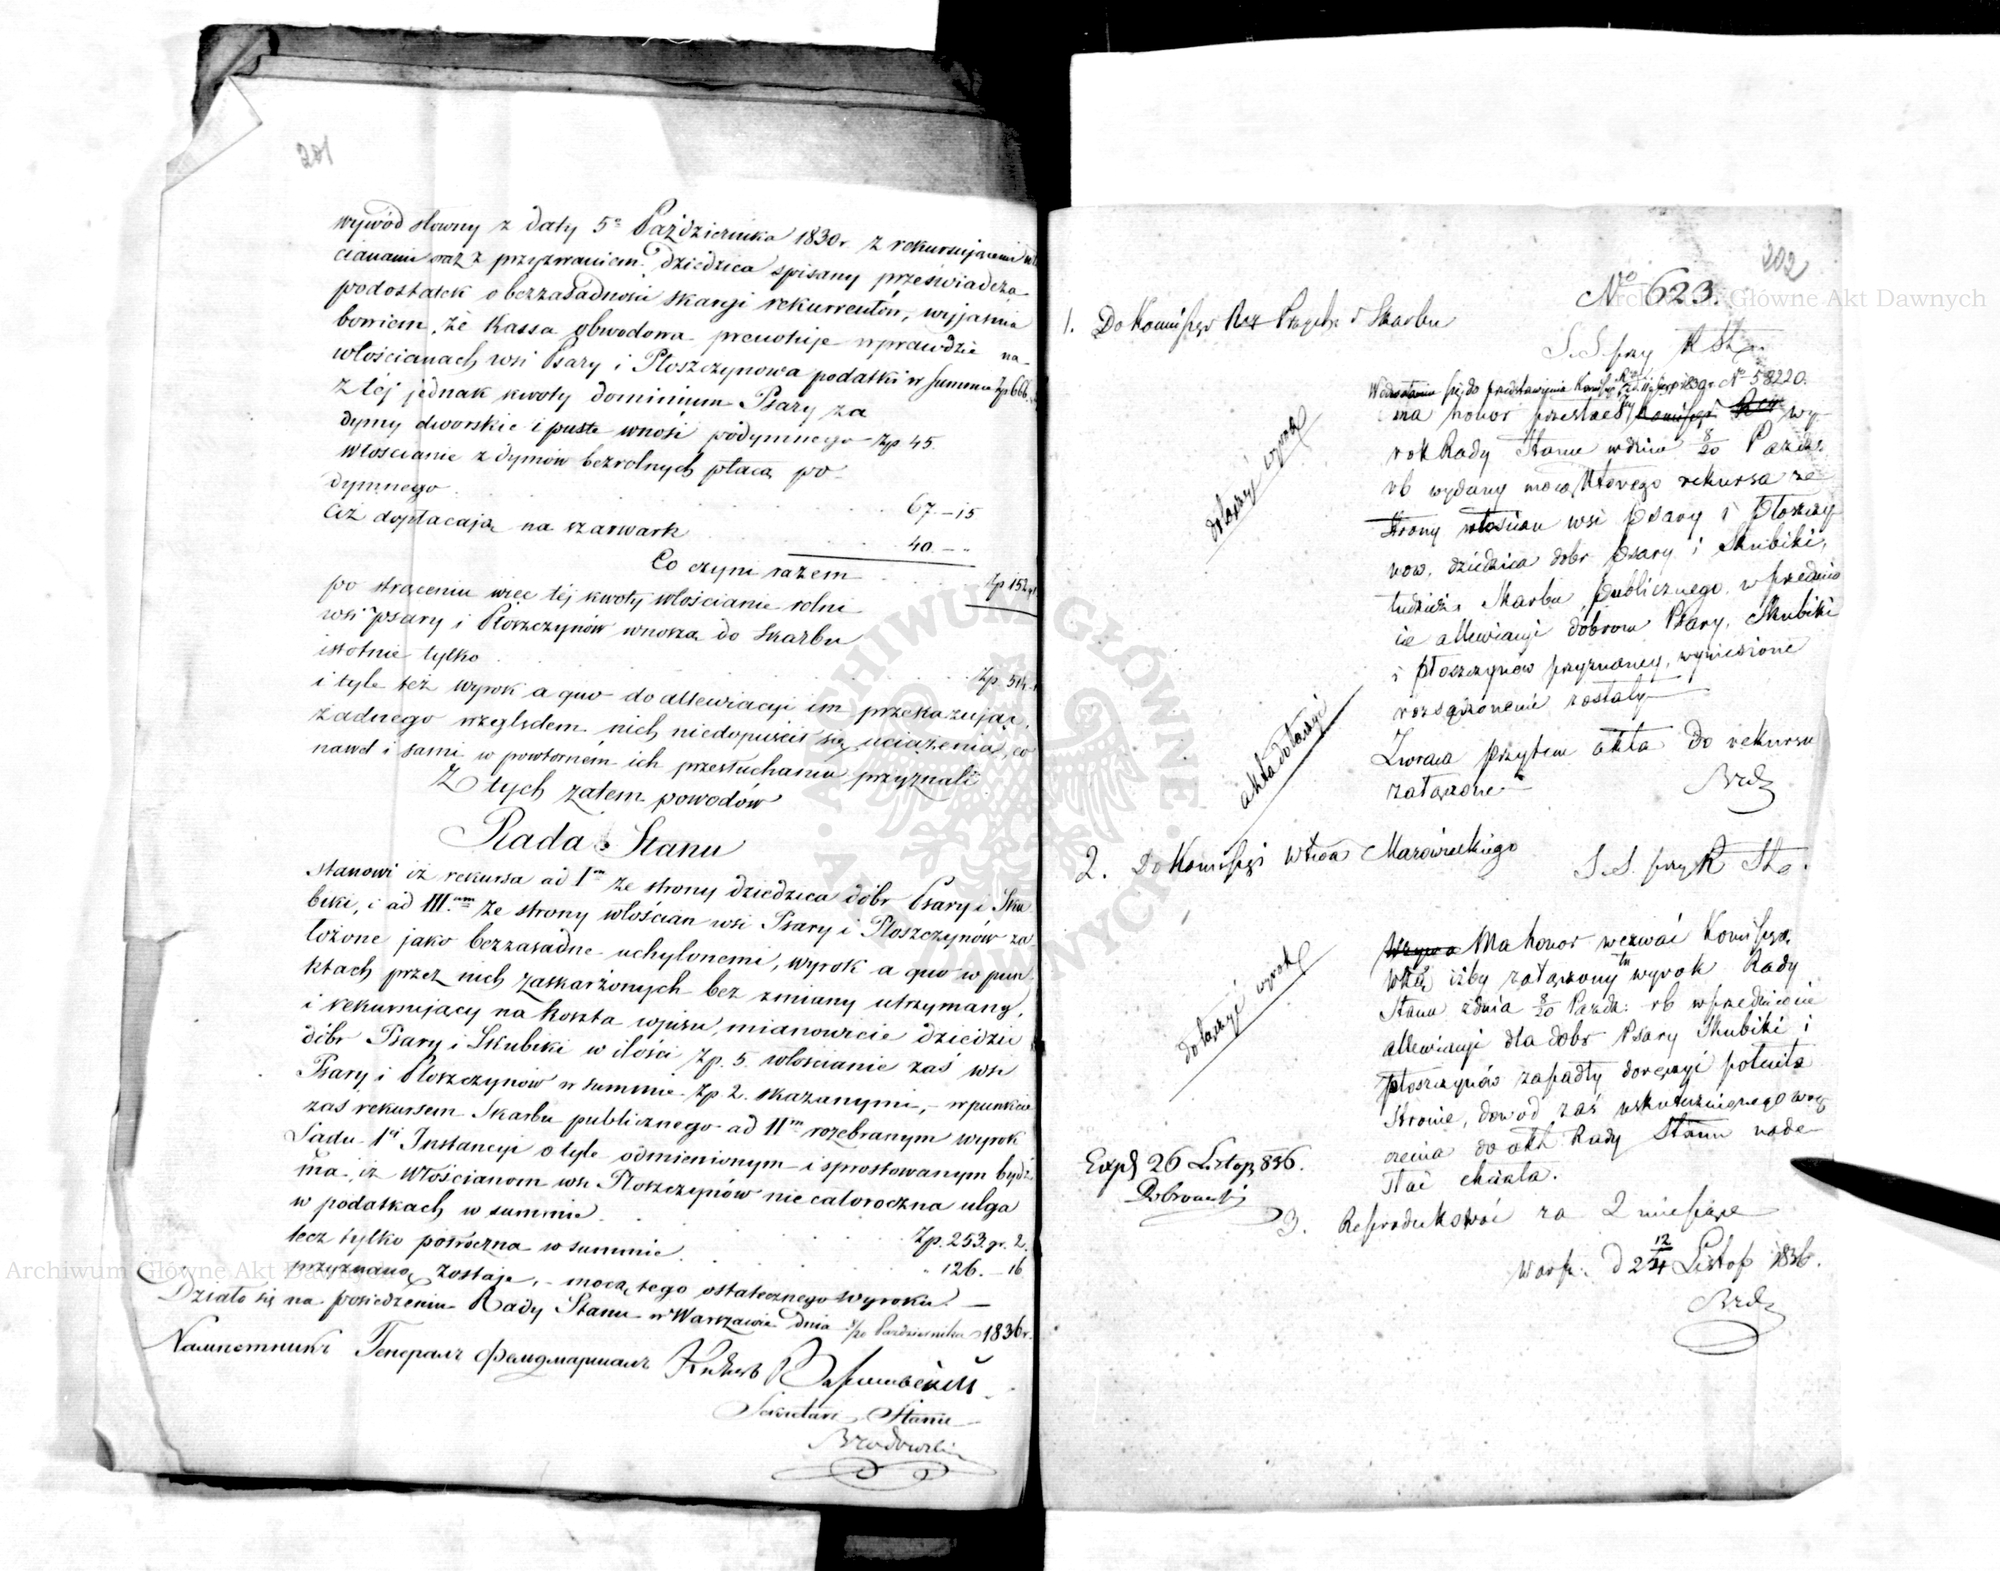 201
wywód słowny z daty 5º Października 1830 r. z rekursującemi
cianami oraz z przyzwaniem dziedzica spisany przeświadcza
podostatek o bezzasadności skargi rekurrentów, wyjaśnia
bowiem, że Kassa obwodowa prenotuje wprawdzie na
włościanach wsi Psary i Płoszczynowa podatki w summie Zp 666.
z tej jednak kwoty dominium Psary za
dymy dworskie i puste wnosi podymnego Zp 45.
włościanie z dymów bezrolnych płacą po-
dymnego . . . 67.—15
ciż dopłacają na szarwark . . . 40.—„
Co czyni razem . . . Zp 152
po strąceniu więc tej kwoty włościanie rolni
wsi Psary i Płoszczynów wnoszą do Skarbu
istotnie tylko . . . Zp. 514
i tyle też wyrok a quo do allewiacyi im przekazując,
żadnego względem nich niedopuścił się uciążenia, co
nawet i sami w powtórném ich przesłuchaniu przyznali
Z tych zatem powodów
Rada Stanu
stanowi iż rekursa ad Iᵐ ze strony dziedzica dóbr Psary i Sku
biki, i ad III.ᵘᵐ ze strony włościan wsi Psary i Płoszczynów za
łożone jako bezzasadne uchylonemi, wyrok a quo w pun
ktach przez nich zaskarżonych bez zmiany utrzymany,
i rekursujący na koszta wpisu, mianowicie dziedzic
dóbr Psary i Skubiki w ilości Zp. 5. włościanie zaś wsi
Psary i Płoszczynów w summie Zp. 2. skazanymi,— w punkcie
zaś rekursem Skarbu publicznego ad IIᵐ rozebranym wyrok
Sądu 1ᵉʲ Instancyi o tyle odmienionym i sprostowanym bydź
ma, iż Włościanom wsi Płoszczynów nie całoroczna ulga
w podatkach w summie . . . Zp. 253. gr. 2.
lecz tylko półroczna w summie . . . „ 126.—16
przyznaną zostaje,— mocą tego ostatecznego wyroku.—
Działo się na posiedzeniu Rady Stanu w Warszawie dnia 8/20 Października 1836 r.
Намѣстникъ Генералъ Фельдмаршалъ Князь Варшавскій
Sekretarz Stanu
Brodowski
202
Nº 623.
1. Do Kommissyi Rzą Przych i Skarbu
S. S. przy R Stą.
W odwołaniu się do przedstawienia Kommissyi Rz. z d. 11 Sierp 1830 r. Nº 58220.
ma honor przesłać wy-
rok Rady Stanu w dniu 8/20 Paździer.
rb wydany mocą którego rekursa ze
strony włościan wsi Psary i Płoszczy
now, dziedzica dobr Psary i Skubiki,
tudzież Skarbu publicznego w przedmio
cie allewiacyi dobrom Psary, Skubiki
i Płoszczynów przyznaney, wyniesione
rozsądzonemi zostały
Zwraca przytem akta do rekursu
załączone
Brdz
dołączyć wyrok
akta dołączyć
2. Do Kommissyi Wtwa Mazowieckiego
S. S. przy R Sta.
Wzywa Ma honor wezwać Kommissyą
Wtą iżby załączony tu wyrok Rady
Stanu z dnia 8/20 Paźdz: rb w przedmiocie
allewiacyi dla dobr Psary Skubiki i
Płoszczynów zapadły doręczyć poleciła
stronie, dowod zaś uskutecznionego wrę
czenia do akt Rady Stanu nade
słać chciała.
dołączyć wyrok
Exp 26 Listop 836.
Dobrowolski
3. Reprodukować za 2 miesiące
Warsz. d 12/24 Listop 1836.
Brdz
Archiwum Główne Akt Dawnych
Archiwum Główne Akt Dawnych
ARCHIWUM GŁÓWNE AKT DAWNYCH